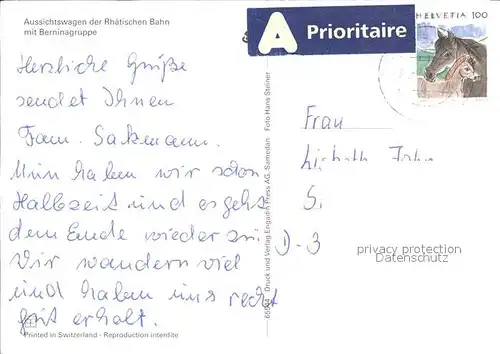 Aussichtswagen der Rhätischen Bahn
mit Berninagruppe
Herzliche Grüße
sendet Ihnen
Fam. Sakmann.
Nun haben wir schon
Halbzeit und es geht
dem Ende wieder zu.
Wir wandern viel
und haben uns recht
gut erholt.
Printed in Switzerland - Reproduction interdite
Druck und Verlag Engadin Press AG, Samedan Foto Hans Steiner
A Prioritaire
HELVETIA 100
Frau
S.
D - 3
privacy protection
Datenschutz